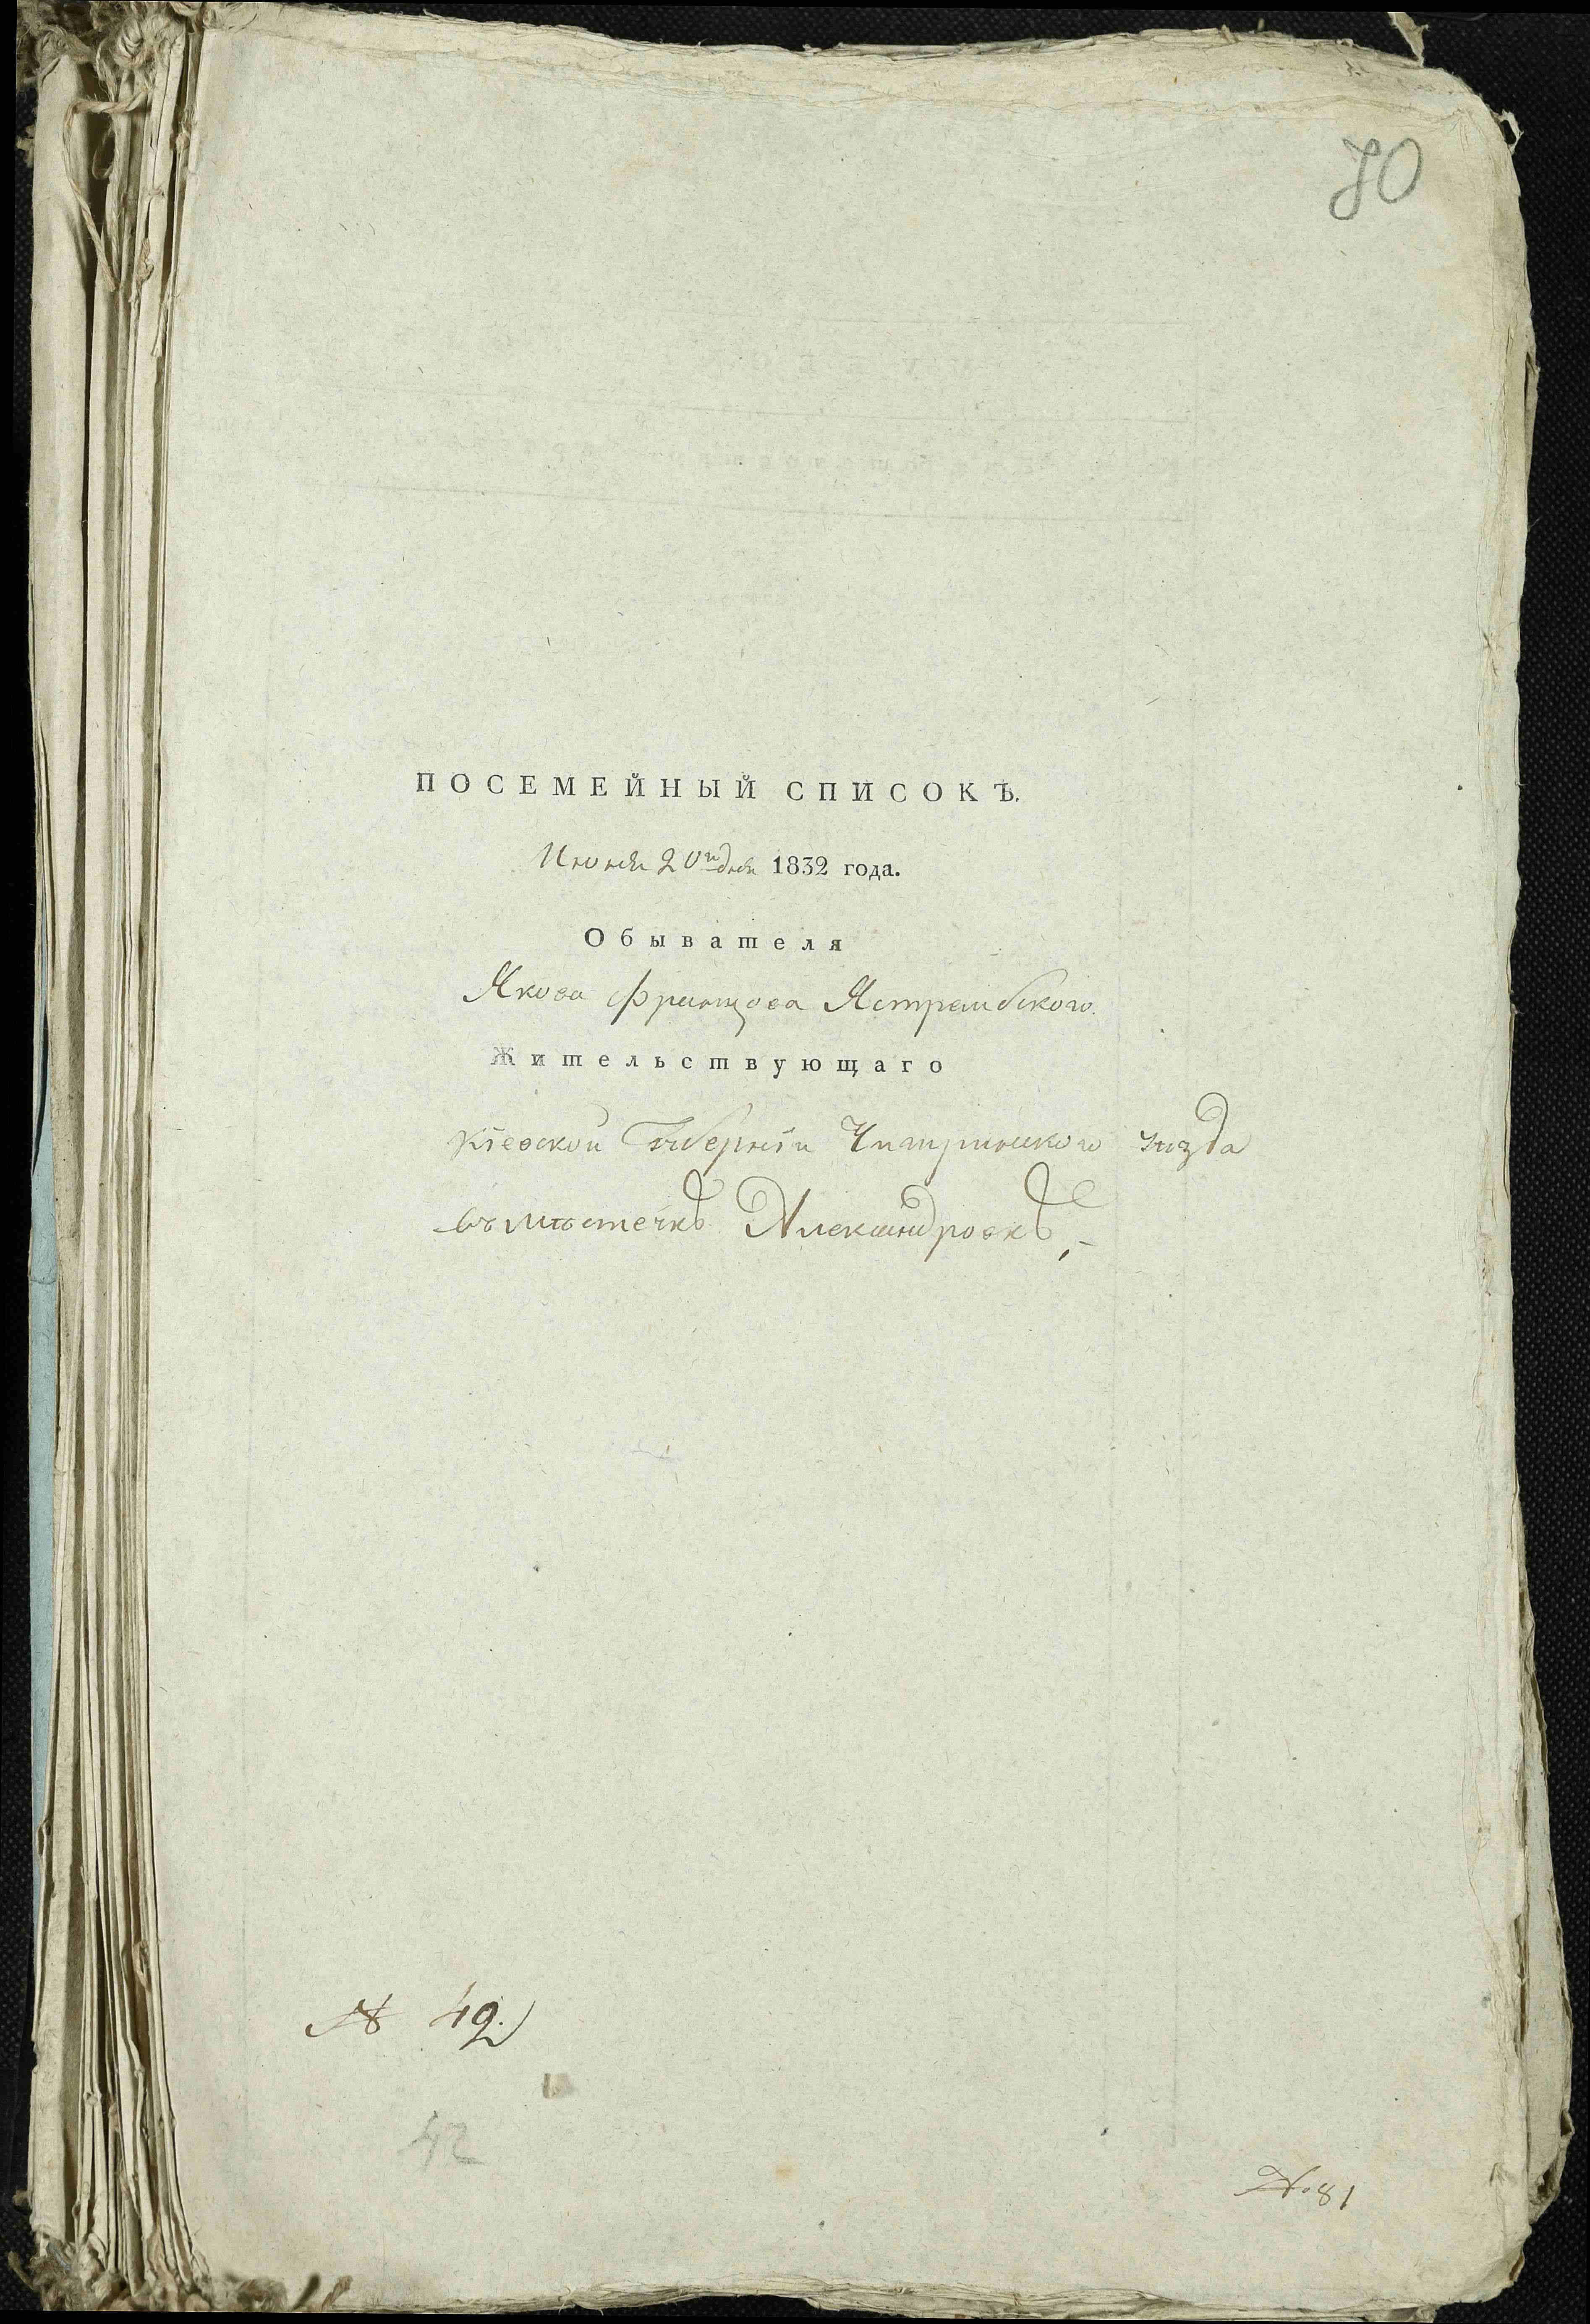 70
ПОСЕМЕЙНЫЙ СПИСОКЪ.
Июня 20го дня 1832 года.
Обывателя
Якова Францова Ястрембского.
Жительствующаго
Кіевской Губерніи Чигринского уѣзда
въ мѣстечкѣ Александровкѣ,-
№ 42.
42
№ 81